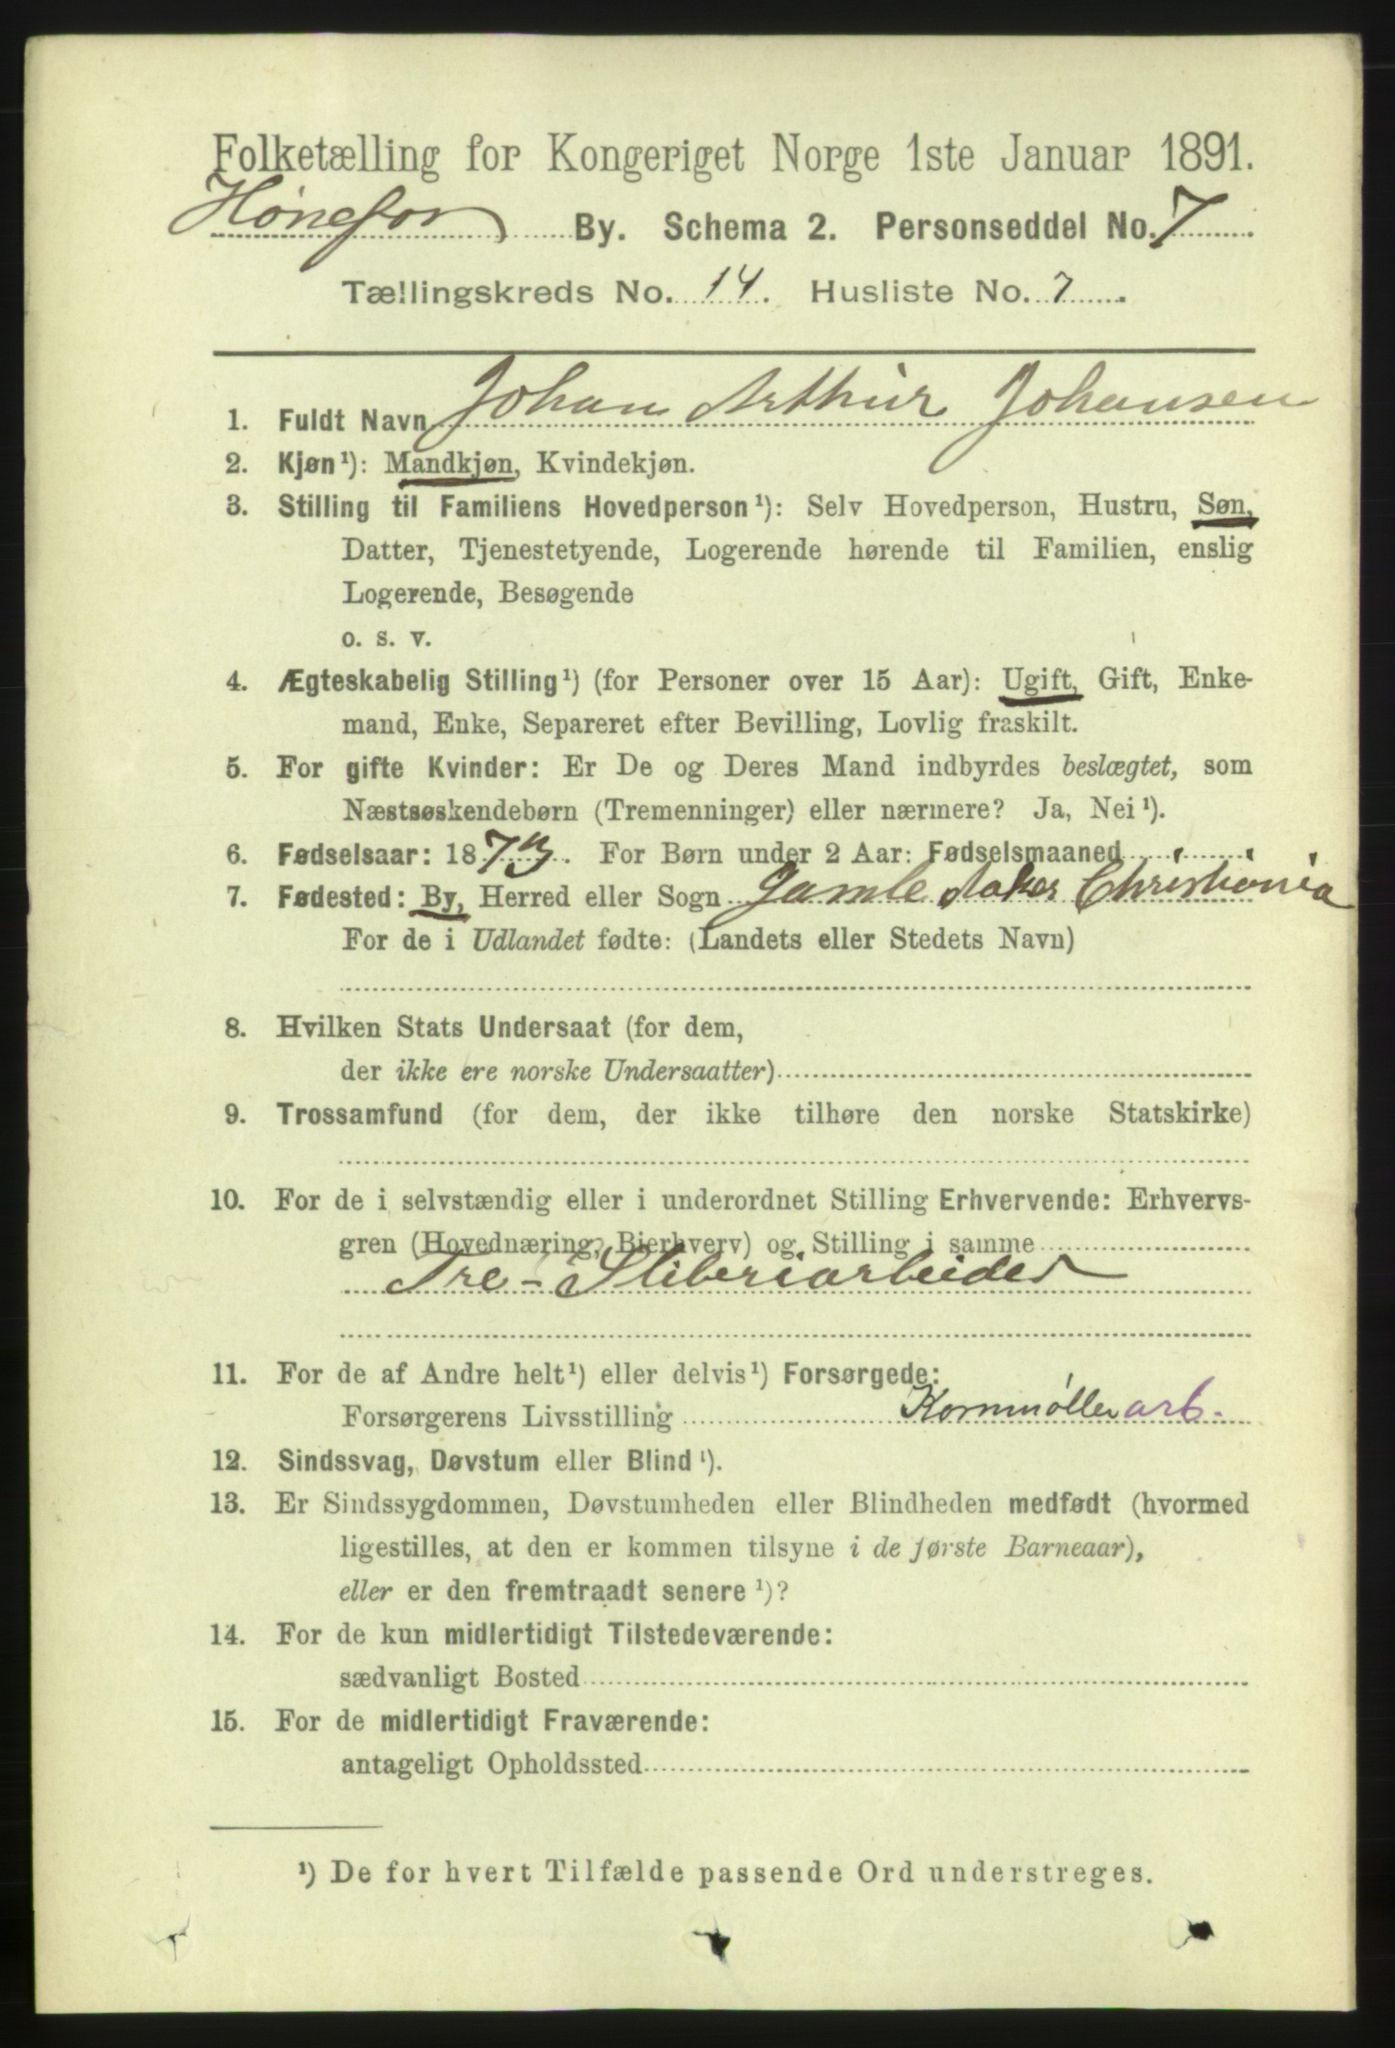 Folketælling for Kongeriget Norge 1ste Januar 1891.
Hønefos By. Schema 2. Personseddel No. 7
Tællingskreds No. 14. Husliste No. 7
1. Fuldt Navn Johan Arthur Johansen
2. Kjøn¹): Mandkjøn, Kvindekjøn.
3. Stilling til Familiens Hovedperson¹): Selv Hovedperson, Hustru, Søn,
Datter, Tjenestetyende, Logerende hørende til Familien, enslig
Logerende, Besøgende
o. s. v.
4. Ægteskabelig Stilling¹) (for Personer over 15 Aar): Ugift, Gift, Enke-
mand, Enke, Separeret efter Bevilling, Lovlig fraskilt.
5. For gifte Kvinder: Er De og Deres Mand indbyrdes beslægtet, som
Næstsøskendebørn (Tremenninger) eller nærmere? Ja, Nei¹).
6. Fødselsaar: 1873. For Børn under 2 Aar: Fødselsmaaned
7. Fødested: By, Herred eller Sogn Gamle Aaker Christiania
For de i Udlandet fødte: (Landets eller Stedets Navn)
8. Hvilken Stats Undersaat (for dem,
der ikke ere norske Undersaatter)
9. Trossamfund (for dem, der ikke tilhøre den norske Statskirke)
10. For de i selvstændig eller i underordnet Stilling Erhvervende: Erhvervs-
gren (Hovednæring, Bierhverv) og Stilling i samme
Træ-Sliberiarbeider
11. For de af Andre helt¹) eller delvis¹) Forsørgede:
Forsørgerens Livsstilling Kornmøllearb.
12. Sindssvag, Døvstum eller Blind¹).
13. Er Sindssygdommen, Døvstumheden eller Blindheden medfødt (hvormed
ligestilles, at den er kommen tilsyne i de første Barneaar),
eller er den fremtraadt senere¹)?
14. For de kun midlertidigt Tilstedeværende:
sædvanligt Bosted
15. For de midlertidigt Fraværende:
antageligt Opholdssted
¹) De for hvert Tilfælde passende Ord understreges.